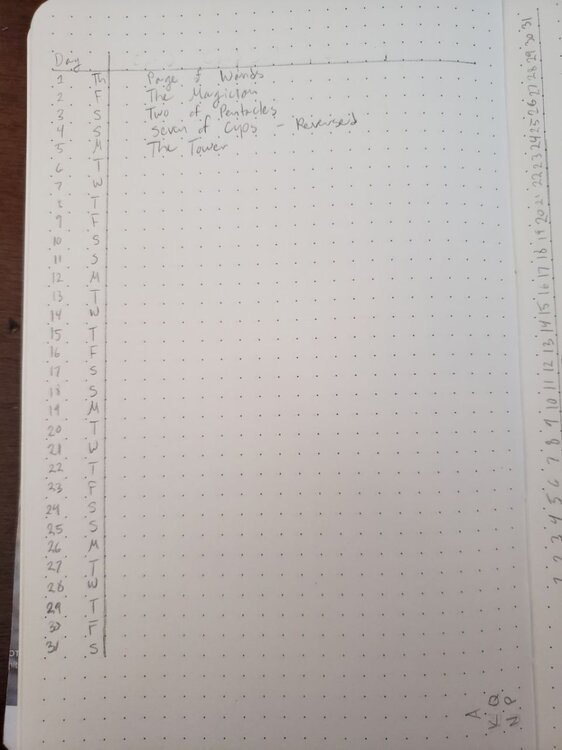 Day
1 Th Page of Wands
2 F The Magician
3 S Two of Pentacles
4 S Seven of Cups - Reversed
5 M The Tower
6 T
7 W
8 T
9 F
10 S
11 S
12 M
13 T
14 W
15 T
16 F
17 S
18 S
19 M
20 T
21 W
22 T
23 F
24 S
25 S
26 M
27 T
28 W
29 T
30 F
31 S
1 2 3 4 5 6 7 8 9 10 11 12 13 14 15 16 17 18 19 20 21 22 23 24 25 26 27 28 29 30 31
A
K Q
N P